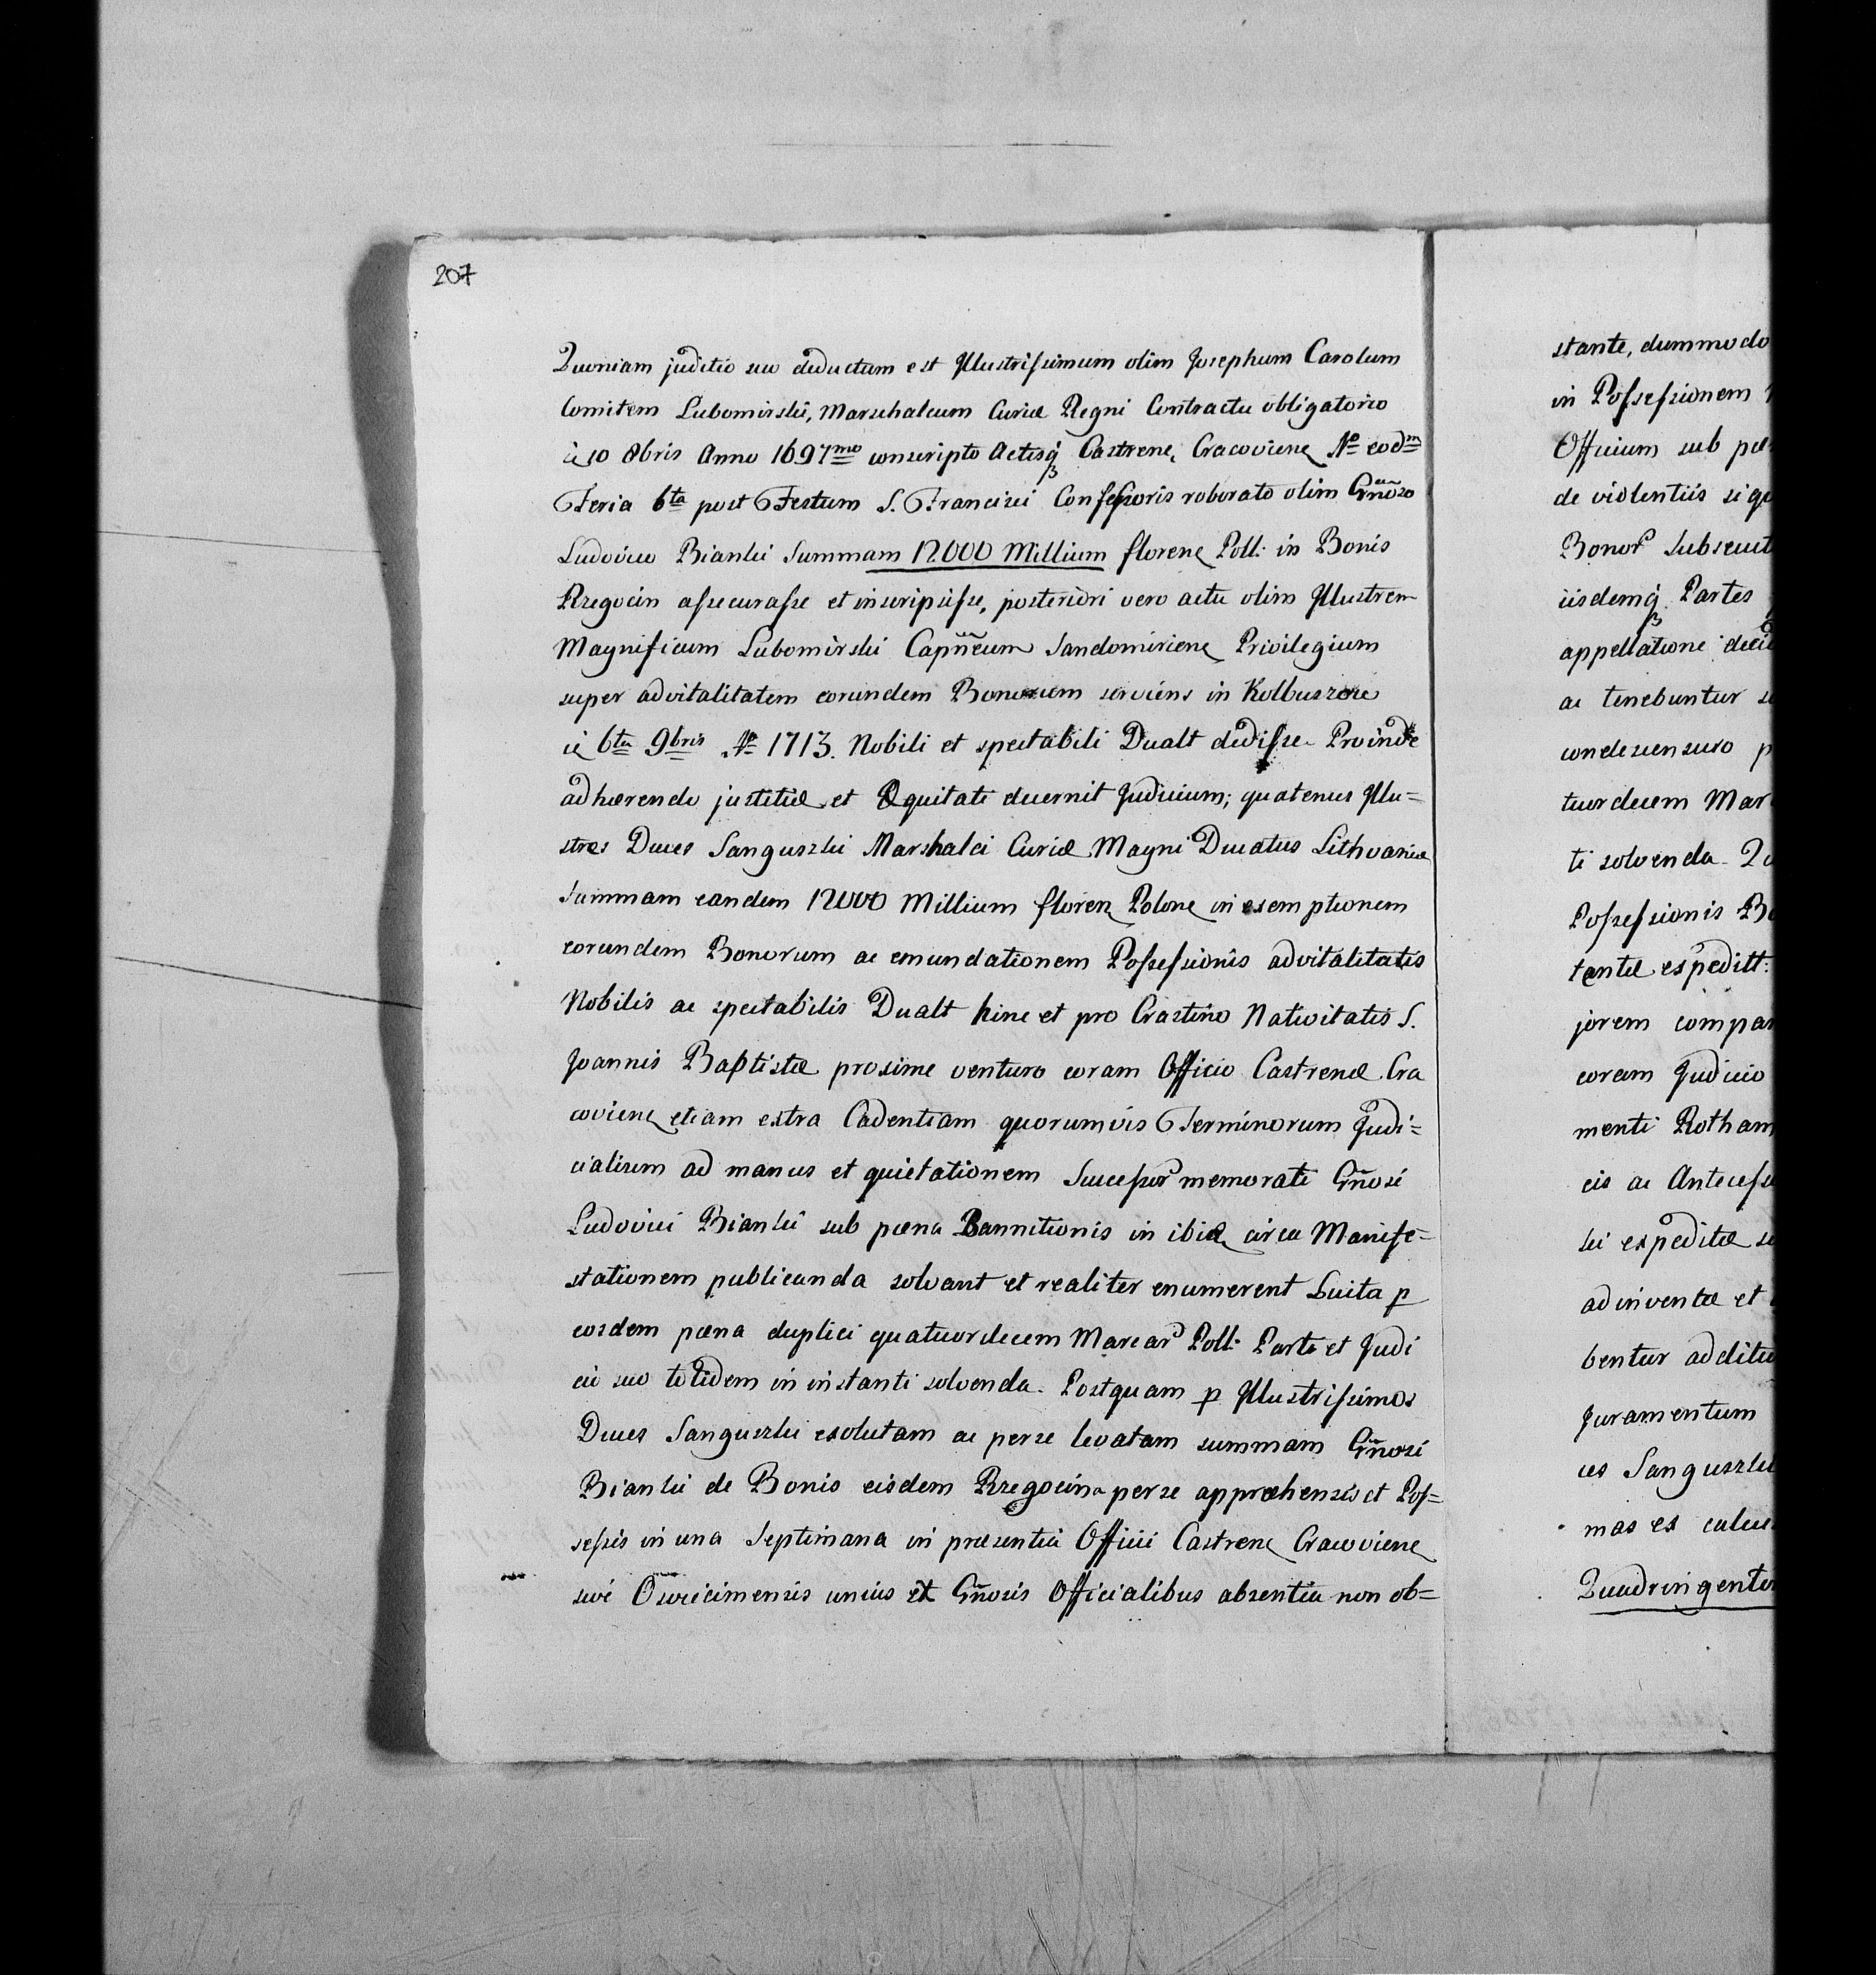 207
Quoniam juditio suo deductum est Illustrissimum olim Josephum Carolum
Comitem Lubomirski, Marschalcum Curiæ Regni Contractu obligatorio
10 8bris Anno 1697mo conscripto Actisq Castrene, Cracoviene Ao eodm
Feria 6ta post Festum S. Francisci Confessoris roborato olim Gñoso
Ludovico Bianki Summam 12000 Millium florene Poll: in Bonis
Rzegocin assecurasse et inscripsisse, posteriori vero actu olim Illustrem
Magnificum Lubomirski Capñeum Sandomiriene Privilegium
super advitalitatem eorundem Bonorum serviens in Kolbuszow
6ta 9bris Ao 1713. Nobili et spectabili Dualt dedisse. Proinde
adhærendo justitiæ et Æquitati decernit Judicium; quatenus Illu=
stres Duces Sanguszki Marshalci Curiæ Magni Ducatus Lithvaniæ
Summam eandem 12000 Millium floren Polone in exemptionem
eorundem Bonorum ac emundationem Possessionis advitalitatis
Nobilis ac spectabilis Dualt hinc et pro Crastino Nativitatis S.
Joannis Baptistæ proxime venturo coram Officio Castrenæ Cra
coviene etiam extra Cadentiam quorumvis Terminorum Judi=
cialium ad manus et quietationem Successor memorati Gñosi
Ludovici Bianki sub pæna Bannitionis in ibid circa Manife=
stationem publicanda solvant et realiter enumerent Luita p
eosdem pæna duplici quatuordecem Marcar Poll: Parti et Judi
cii suo totidem in instanti solvenda. Postquam p Illustrissimos
Duces Sanguszki exolutam ac per se levatam summam Gñosi
Bianki de Bonis eisdem Rzegocina per se appræhensis et Pos=
sessis in una Septimana in præsentia Officii Castrene Cracoviene
sive Oswiecimensis unius et Gñosis Officialibus absentia non ob=
stante, dummodo
in Possessionem
Officium sub pæ
de violentiis siqu
Bonor subsecut
iisdemq Partes
appellatione deci
ac tenebuntur s
condescensuro p
tuordecem Mar
ti solvenda. Qu
Possessionis Bo
tentæ expeditt:
jorem compar
coram Judicio
menti Rotham
cis ac Antecess
ki expeditæ s
adinventæ et
bentur additu
Juramentum
ces Sanguszki
mas ex calcu
Quadringento